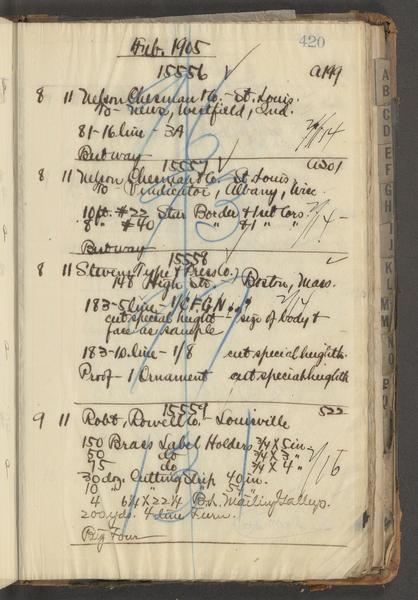 Feb. 1905 420
15556 ✓ A199
8 11 Nelson Chesman & Co. - St. Louis.
To - News, Westfield, Ind.
81-16 line - 3A 2/14
Best way
15557 ✓ A201
8 11 Nelson Chesman & Co. - St. Louis
To Vindicator, Albany, Wisc.
10 ft. #22 Star Border & 1 set Cors. 2/14
8 " #40 " & 1 " "
Best way
15558 ✓
8 11 Stevens Type & Press Co. Boston, Mass.
148 High St. 2/14
183-5 line - 1/C F. G. N
cut special height - size of body &
face as sample
183-10 line - 1/8 cut special heighth
Proof - 1 Ornament cut special heighth
15559 522
9 11 Robt. Rowell Co. - Louisville
150 Brass Label Holders 3/4 x 5 in.
50 do 3/4 x 3 "
75 do 3/4 x 4 " 2/16
30 doz. Cutting Strip 40 in.
10 " " " "
4 6 1/4 x 22 1/4 B. S. Mailing Galleys.
200 yds. 4 line Furn.
Big Four
A
B
C
D
E
F
G
H
J
K
L
M
N
O
P